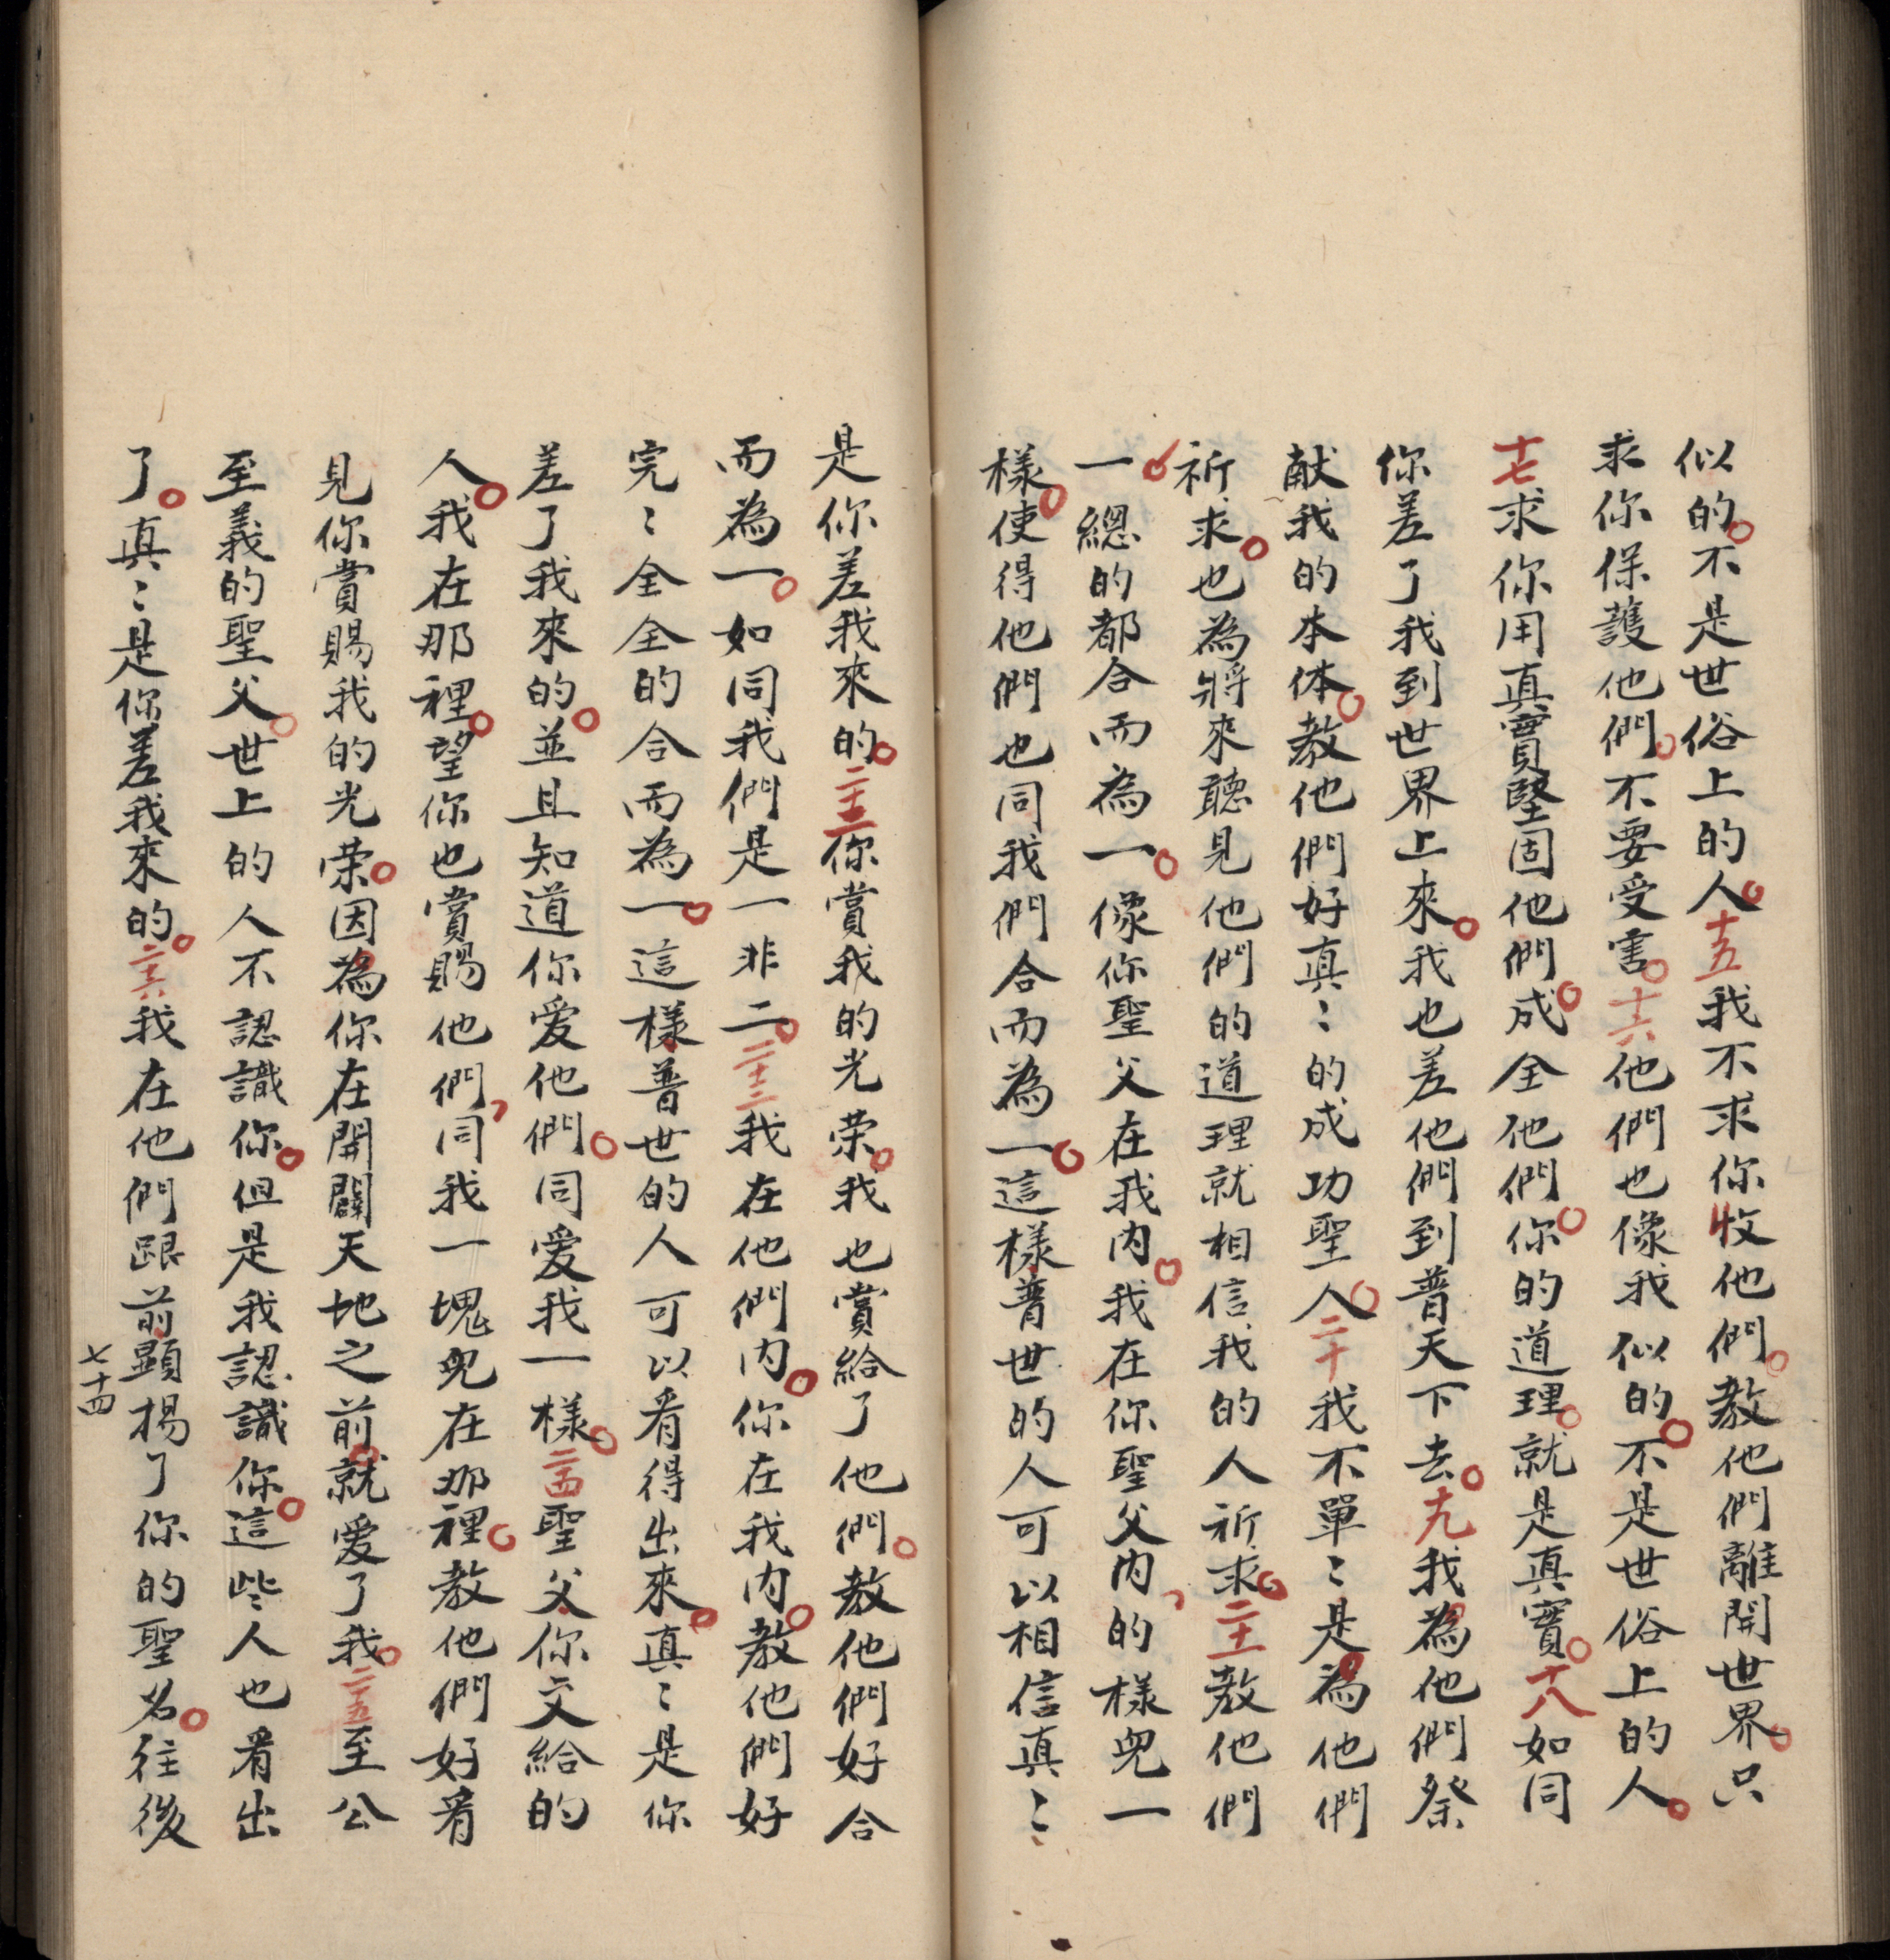 似的。不是世俗上的人。十五我不求你收他們。教他們離開世界。只
求你保護他們。不要受害。十六他們也像我似的。不是世俗上的人。
十七求你用真實堅固他們。成全他們。你的道理。就是真實。十八如同
你差了我到世界上來。我也差他們到普天下去。十九我為他們祭
献我的本体。教他們好真〻的成功聖人。二十我不單〻是為他們
祈求。也為將來聽見他們的道理就相信我的人祈求。二十一教他們
一總的都合而為一。像你聖父在我內。我在你聖父內、的樣兒一
樣。使得他們也同我們合而為一。這樣普世的人可以相信真〻
是你差我來的。二十二你賞我的光荣。我也賞給了他們。教他們好合
而為一。如同我們是一非二。二十三我在他們內。你在我內。教他們好
完〻全全的合而為一。這樣普世的人可以看得出來。真〻是你
差了我來的。並且知道你爱他們。同爱我一樣。二十四聖父你交給的
人。我在那裡。望你也賞賜他們、同我一塊兒在那裡。教他們好看
見你賞賜我的光荣。因為你在開闢天地之前。就爱了我。二十五至公
至義的聖父。世上的人不認識你。但是我認識你。這些人也看出
了。真〻是你差我來的。二十六我在他們跟前顯揚了你的聖名。往後
七十四